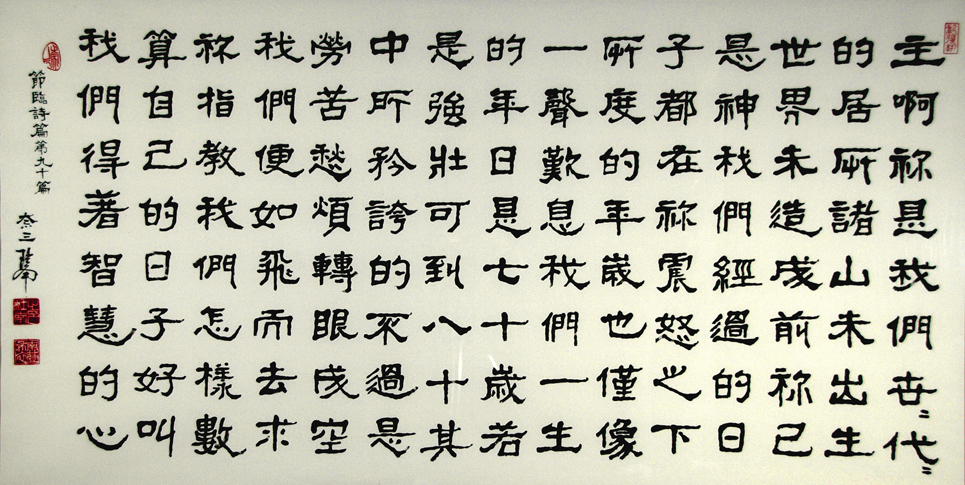 主啊祢是我們世〻代〻
的居所諸山未出生
世界未造成前祢已
是神我們經過的日
子都在祢震怒之下
所度的年歲也僅像
一聲歎息我們一生
的年日是七十歲若
是強壯可到八十其
中所矜誇的不過是
勞苦愁煩轉眼成空
我們便如飛而去求
祢指教我們怎樣數
算自己的日子好叫
我們得著智慧的心
節臨詩篇第九十篇